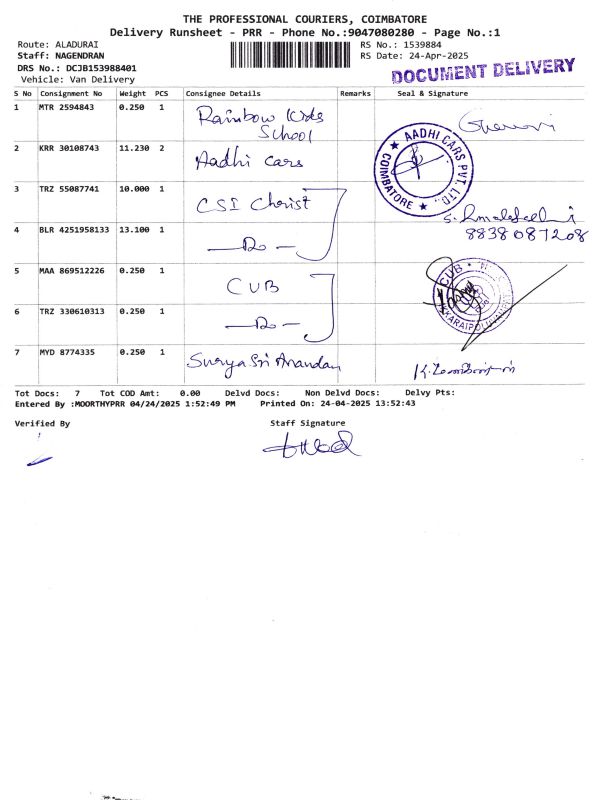 THE PROFESSIONAL COURIERS, COIMBATORE
Delivery Runsheet - PRR - Phone No.:9047080280 - Page No.:1
Route: ALADURAI
Staff: NAGENDRAN
DRS No.: DCJB153988401
Vehicle: Van Delivery
RS No.: 1539884
RS Date: 24-Apr-2025
DOCUMENT DELIVERY
S No Consignment No Weight PCS Consignee Details Remarks Seal & Signature
1 MTR 2594843 0.250 1 Rainbow Kids School
2 KRR 30108743 11.230 2 Aadhi Cars
AADHI CARS PVT. LTD., ★ COIMBATORE ★
3 TRZ 55087741 10.000 1 CSI Christ
4 BLR 4251958133 13.100 1 - Do -
8838087208
5 MAA 869512226 0.250 1 CUB
CUB
6 TRZ 330610313 0.250 1 - Do -
7 MYD 8774335 0.250 1 Surya Sri Anandan
Tot Docs: 7 Tot COD Amt: 0.00 Delvd Docs: Non Delvd Docs: Delvy Pts:
Entered By :MOORTHYPRR 04/24/2025 1:52:49 PM Printed On: 24-04-2025 13:52:43
Verified By
Staff Signature